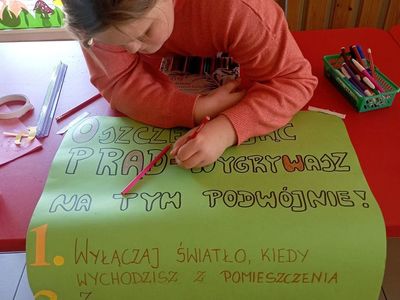 PRĄD-WYGRYWASZ
NA TYM PODWÓJNIE!
1. WYŁĄCZAJ ŚWIATŁO, KIEDY
WYCHODZISZ Z POMIESZCZENIA